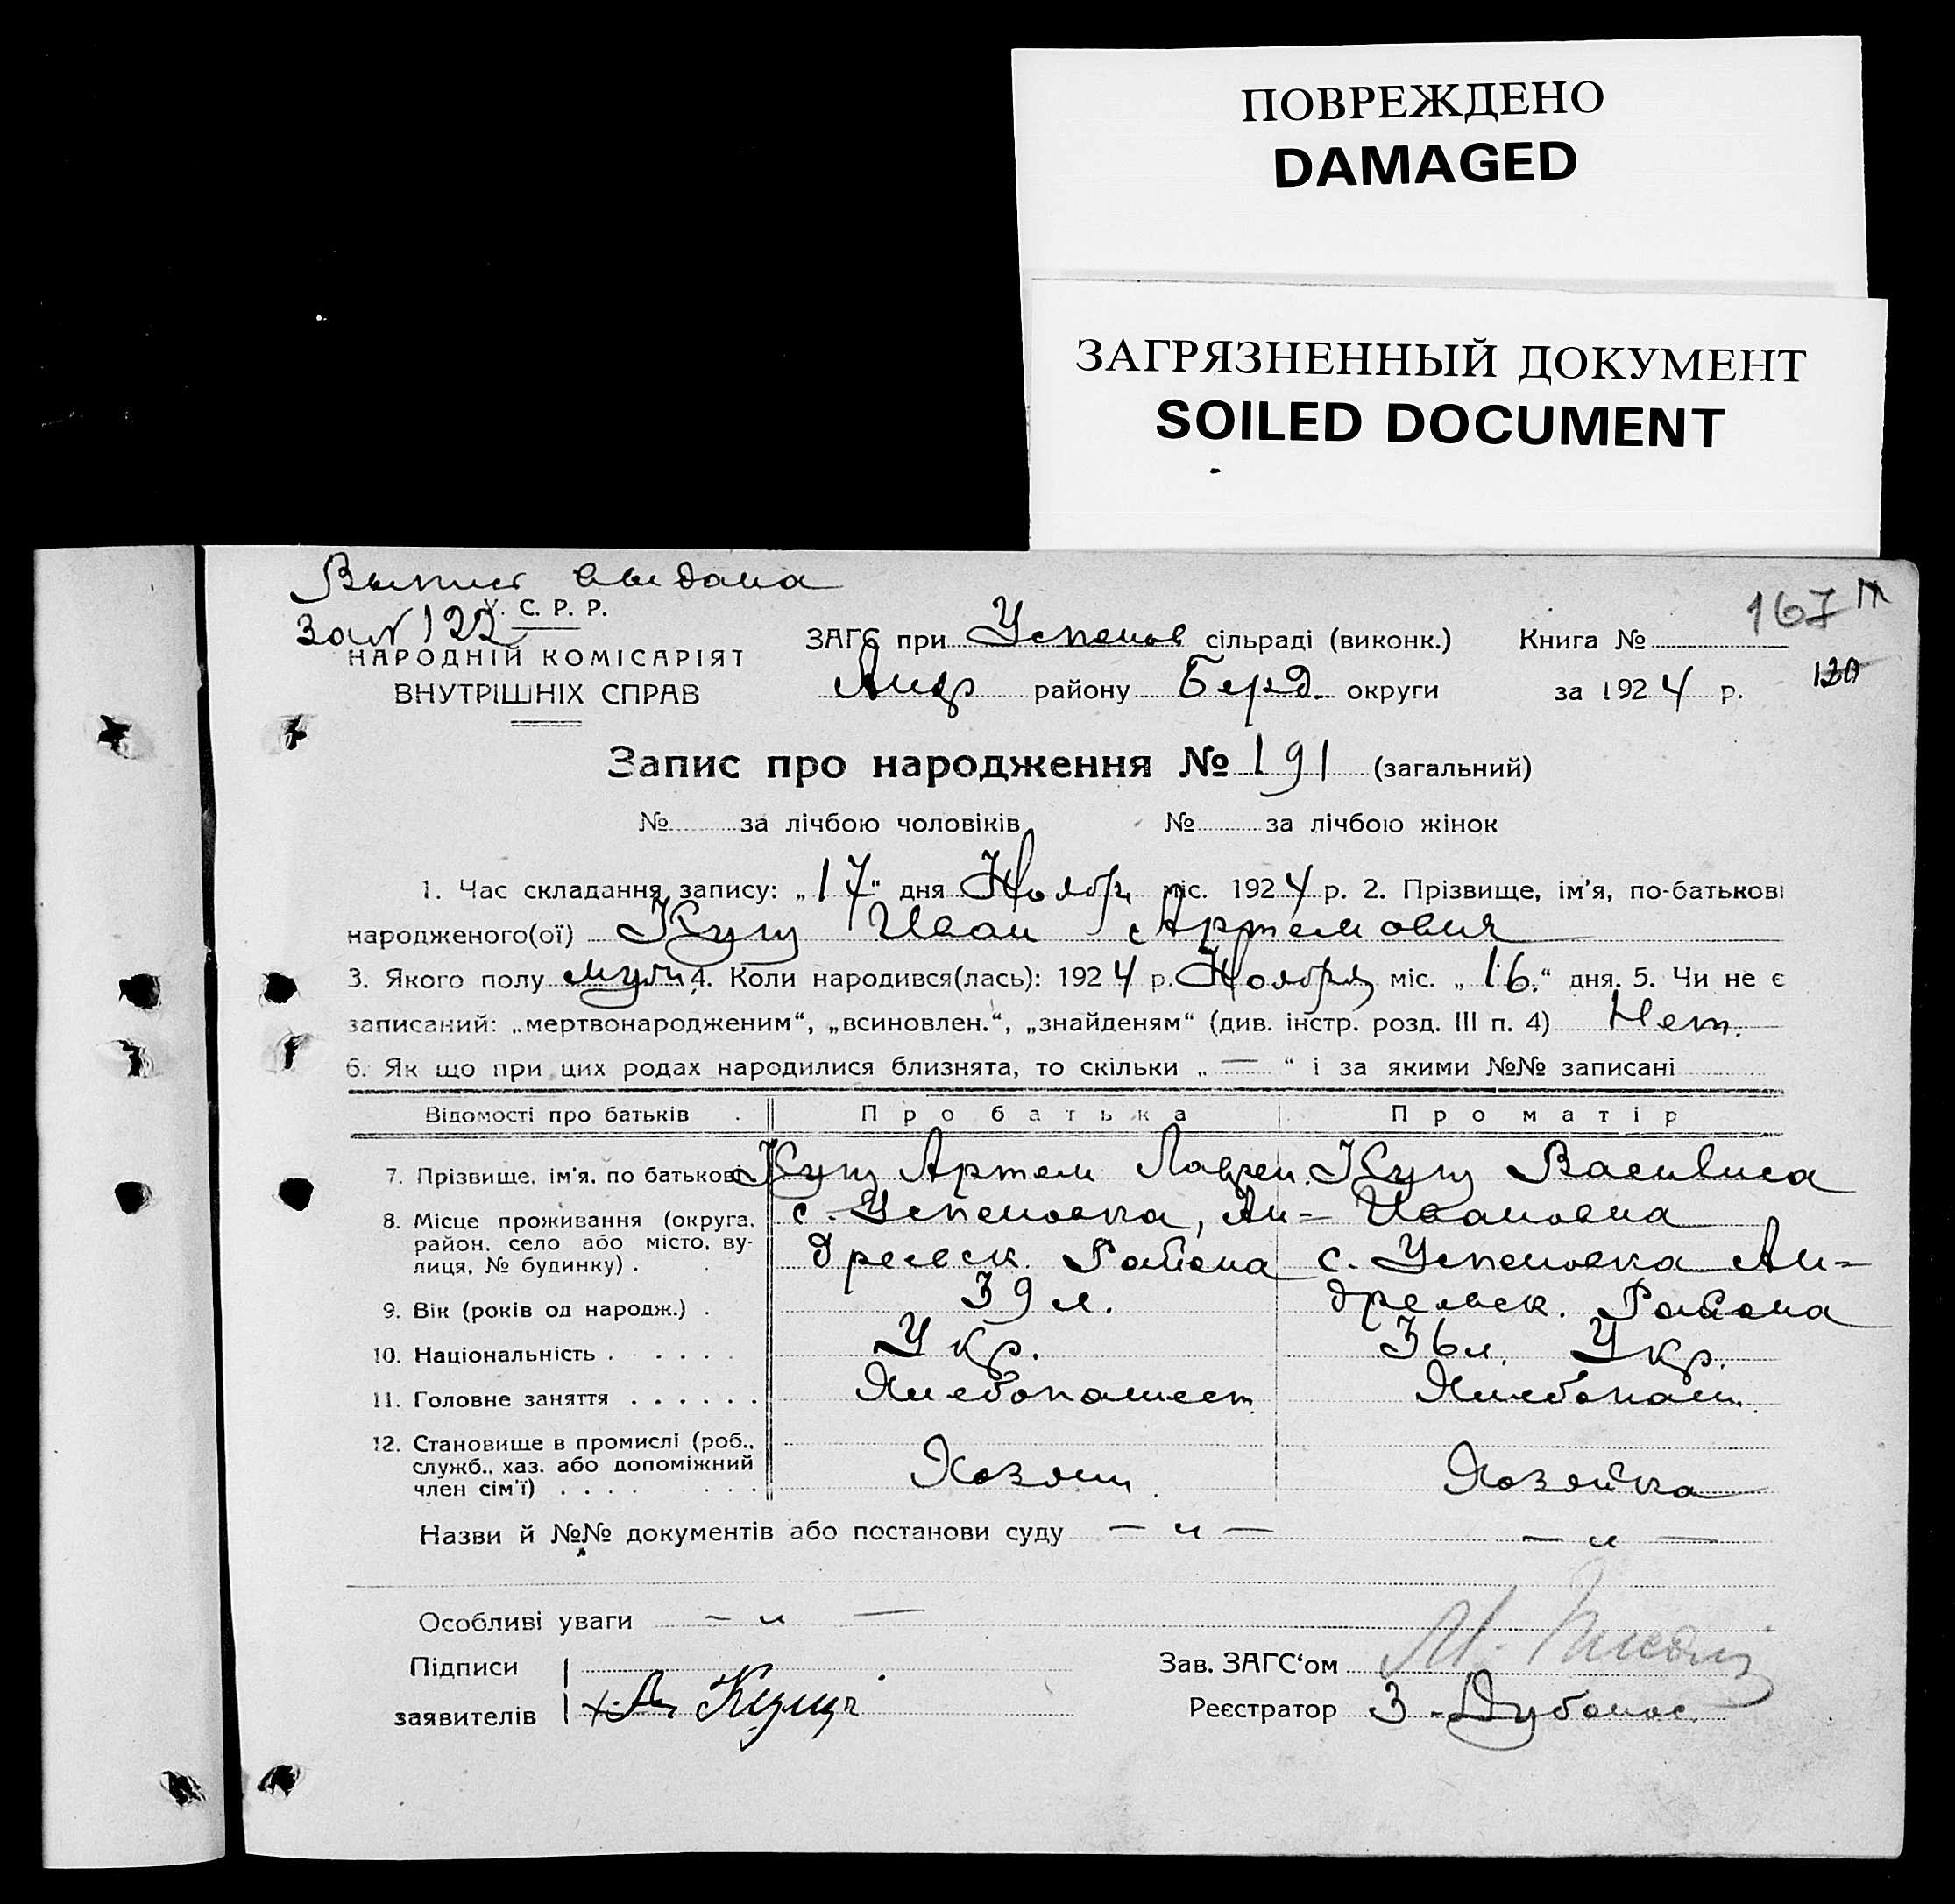 ПОВРЕЖДЕНО
DAMAGED
ЗАГРЯЗНЕННЫЙ ДОКУМЕНТ
SOILED DOCUMENT
Выпись выдана
За № 122 У. С. Р. Р.
НАРОДНІЙ КОМІСАРІЯТ
ВНУТРІШНІХ СПРАВ
ЗАГС при Успенов сільраді (виконк.) Книга № 167
Андр району Берд. округи за 1924 р.
Запис про народження № 191 (загальний)
№ за лічбою чоловіків № за лічбою жінок
1. Час складання запису: „17“ дня Ноябр міс. 1924 р. 2. Прізвище, ім'я, по-батькові
народженого(ої) Кущ Иван Артемович
3. Якого полу муж 4. Коли народився(лась): 1924 р. Ноября міс. „16.“ дня. 5. Чи не є
записаний: „мертвонародженим“, „всиновлен.“, „знайденям“ (див. інстр. розд. III п. 4) Нет.
6. Як що при цих родах народилися близнята, то скільки „—“ і за якими №№ записані
Відомості про батьків Про батька Про матір
7. Прізвище, ім'я, по батькові Кущ Артем Лаврен. Кущ Василиса
8. Місце проживання (округа, с. Успеновка, Ан= Ивановна
район, село або місто, ву- дреевск. Района с. Успеновка Ан=
лиця, № будинку) .
9. Вік (років од народж.) . 39 л. дреевск. Района
10. Національність . . . . . . Укр. 36 л. Укр.
11. Головне заняття . . . . . . Хлебопашест Хлебопаш.
12. Становище в промислі (роб.,
служб., хаз. або допоміжний Хозяин. Хозяйка
член сім'ї) . . . . . . .
Назви й №№ документів або постанови суду — и — — и —
Особливі уваги — и —
Підписи Зав. ЗАГС‘ом
заявителів А Кущ Реєстратор З.